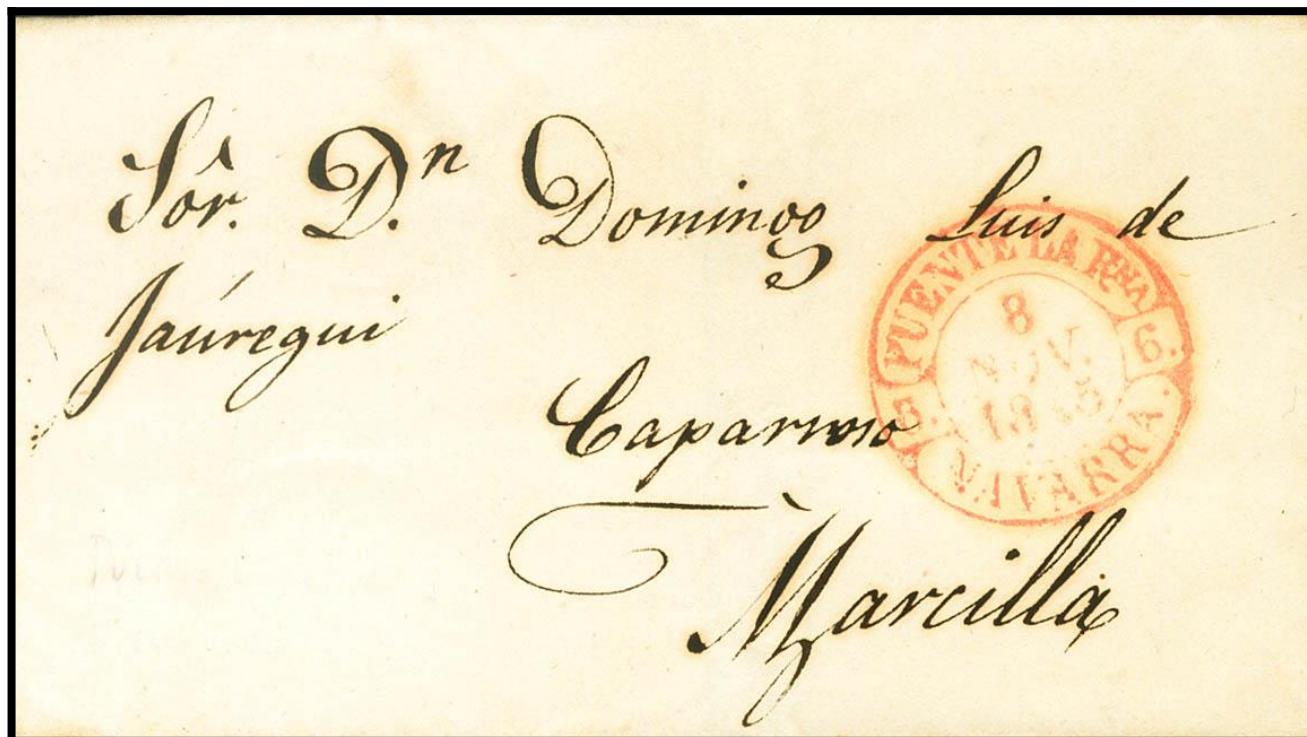 Sôr. D.ⁿ Domingo Luis de
Jaúregui
Caparroso
Marcilla
PUENTE LA Rᴺᴬ
8
NOV.
NAVARRA.